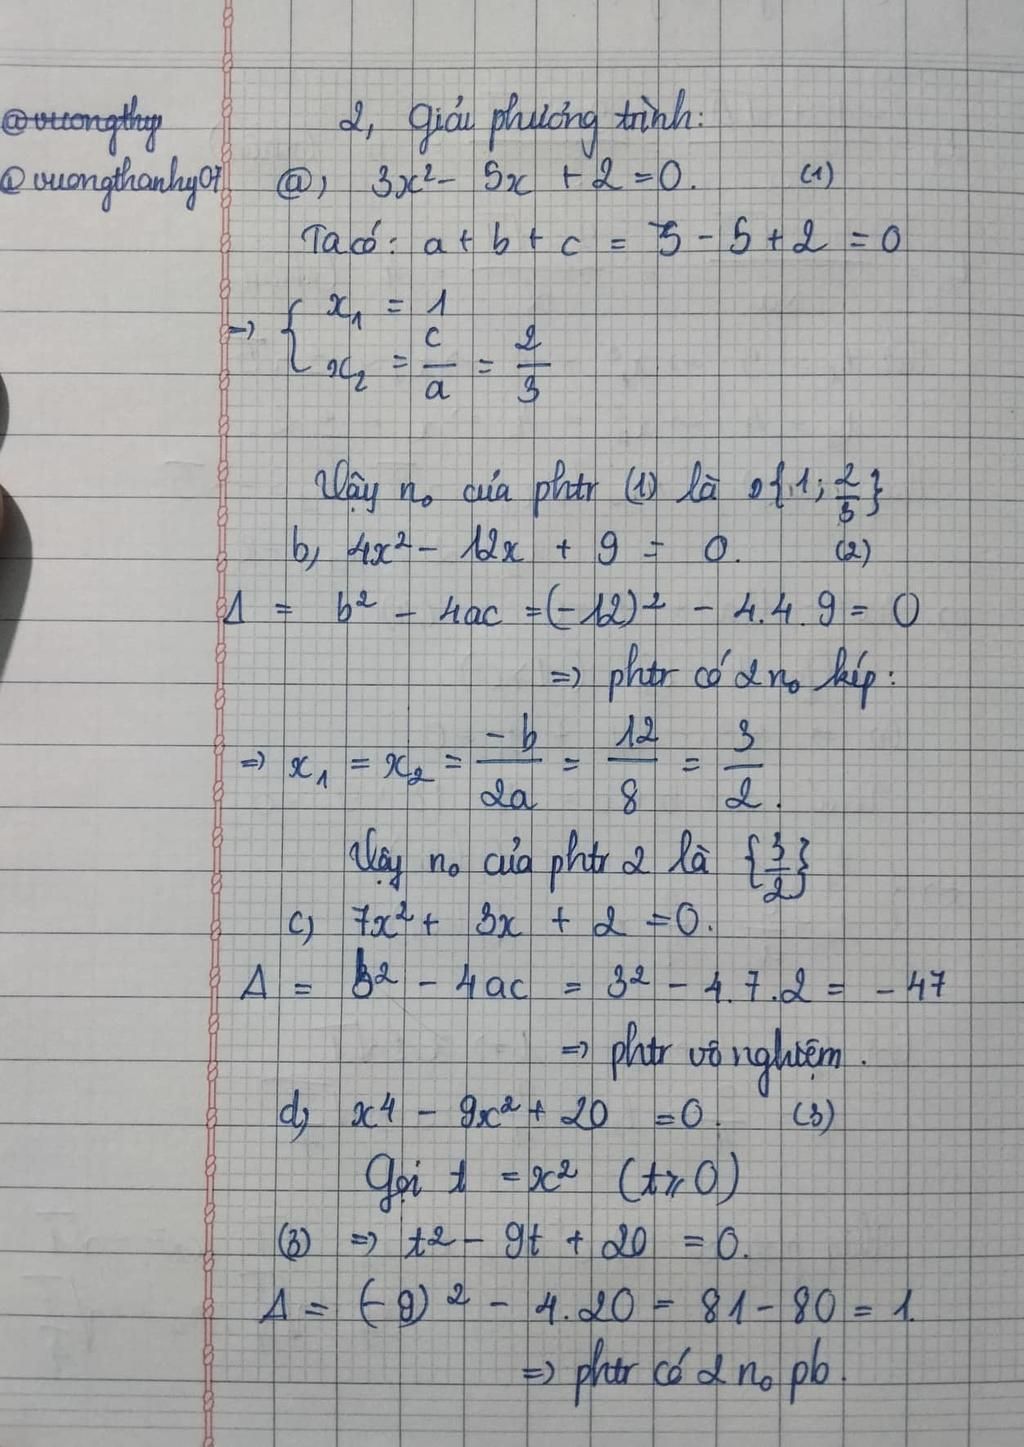 @vuongthy
@vuongthanhy07
2, Giải phương trình:
a, 3x² - 5x + 2 = 0. (1)
Ta có: a + b + c = 3 - 5 + 2 = 0
=> { x₁ = 1
x₂ = c/a = 2/3
Vậy n₀ của phtr (1) là {1; 2/3}
b, 4x² - 12x + 9 = 0. (2)
Δ = b² - 4ac = (-12)² - 4.4.9 = 0
=> phtr có 2 n₀ kép:
=> x₁ = x₂ = -b/2a = 12/8 = 3/2.
Vậy n₀ của phtr 2 là {3/2}
c, 7x² + 3x + 2 = 0.
Δ = b² - 4ac = 3² - 4.7.2 = -47
=> phtr vô nghiệm.
d, x⁴ - 9x² + 20 = 0. (3)
Gọi t = x² (t ≥ 0)
(3) => t² - 9t + 20 = 0.
Δ = (-9)² - 4.20 = 81 - 80 = 1.
=> phtr có 2 n₀ pb.